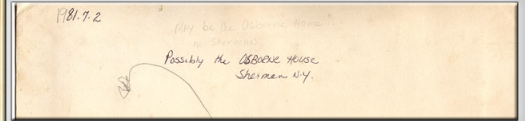 1981.7.2
May be the Osborne Home
in Sherman
Possibly the OSBORNE HOUSE
Sherman N.Y.